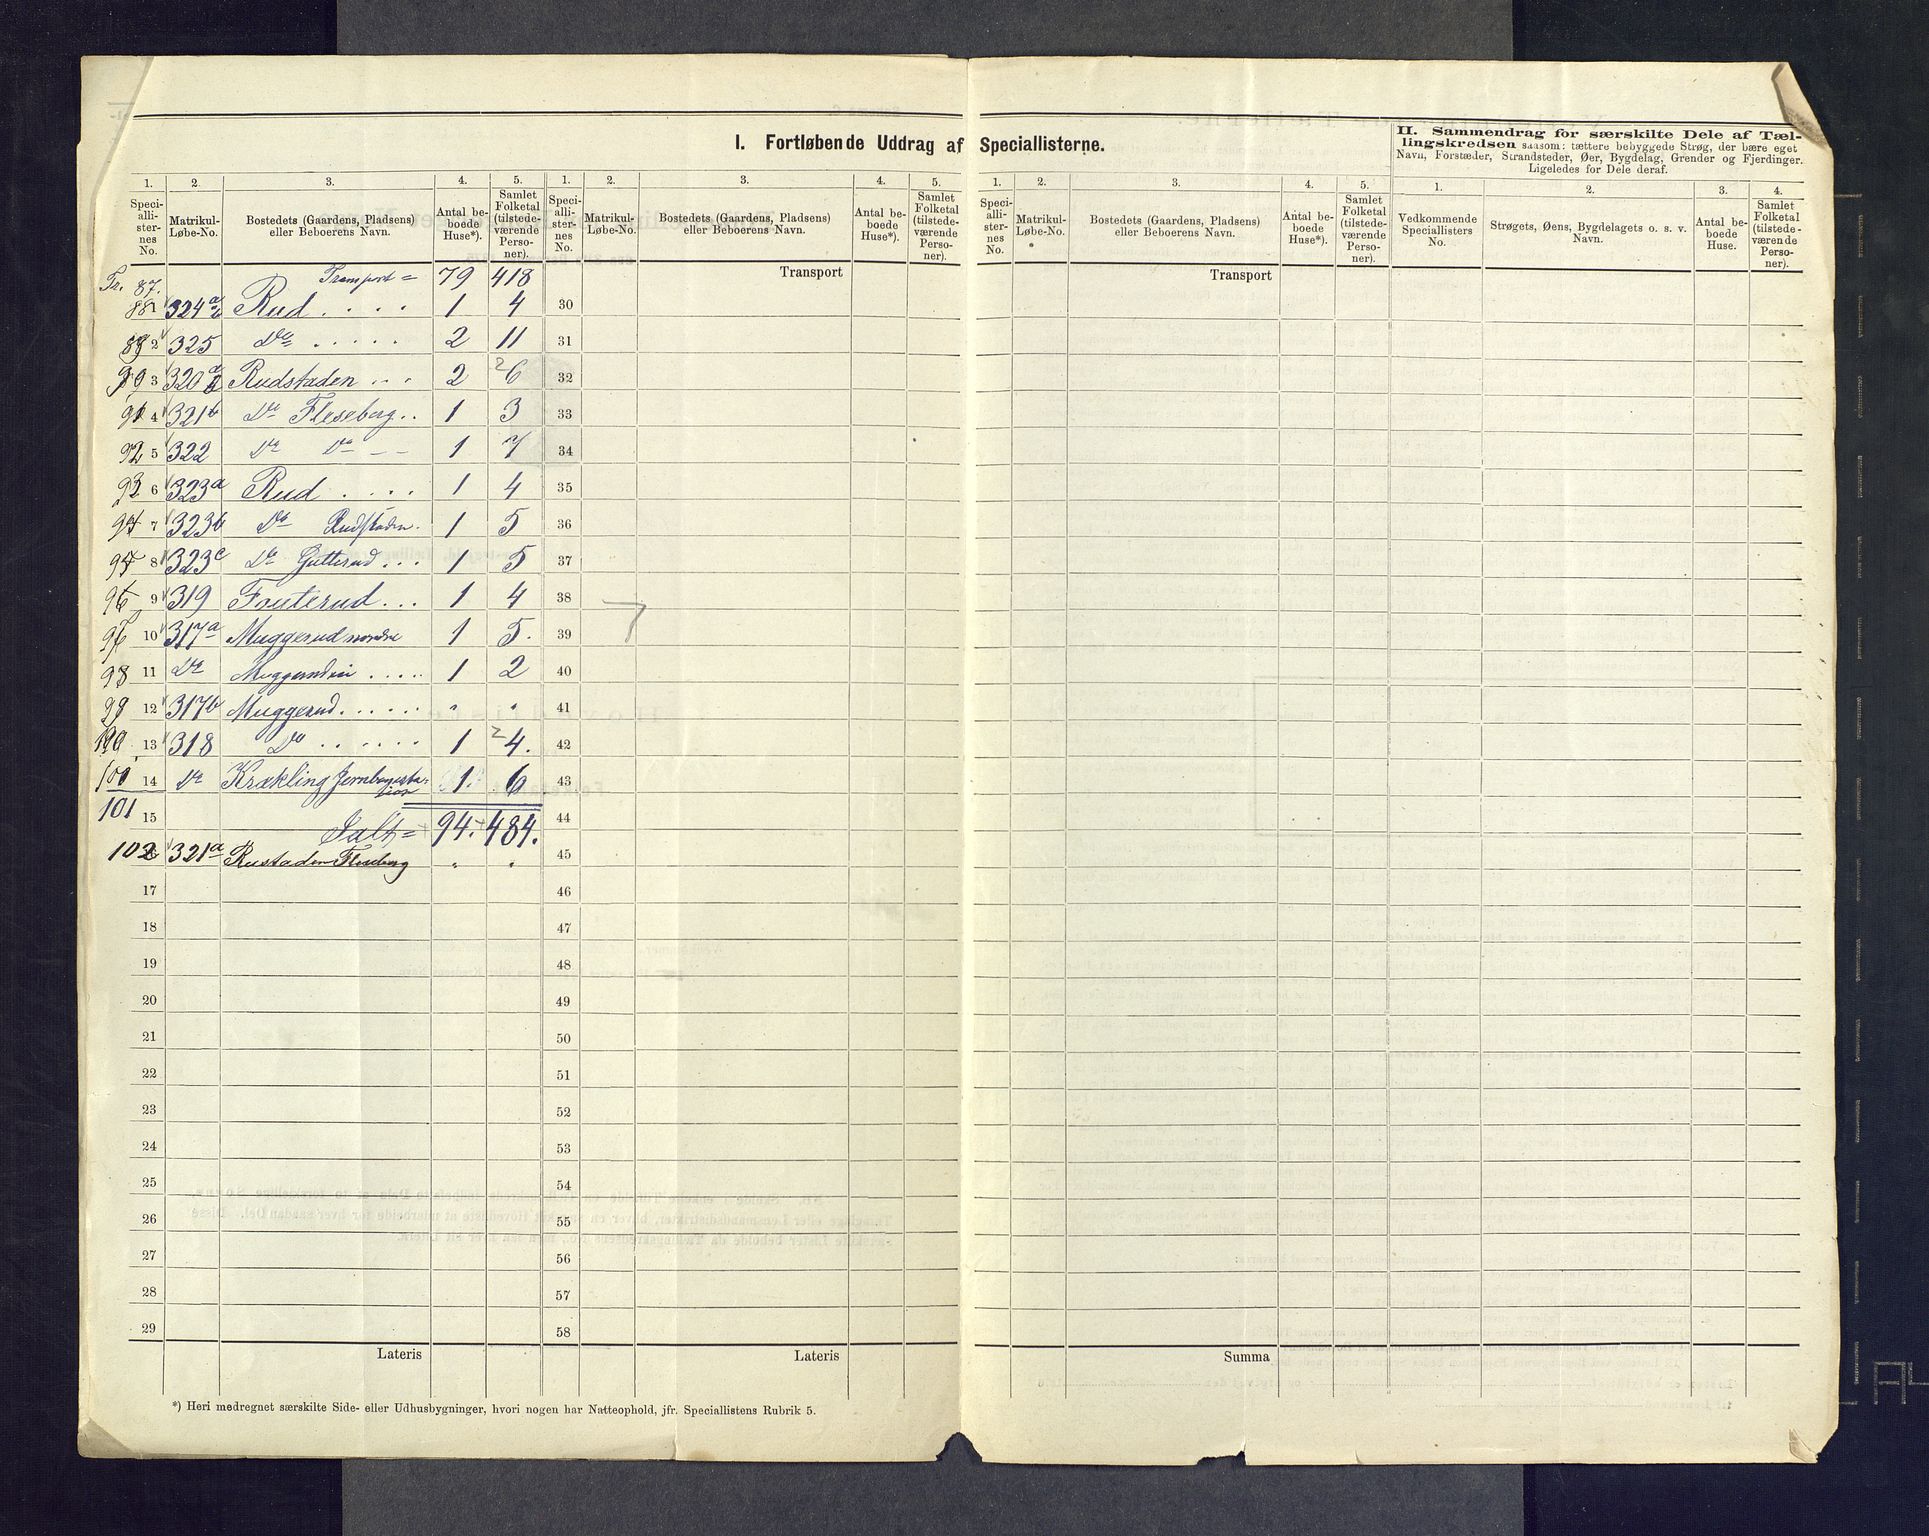 I. Fortløbende Uddrag af Speciallisterne.
II. Sammendrag for særskilte Dele af Tæl-
lingskredsen saasom: tættere bebyggede Strøg, der bære eget
Navn, Forstæder, Strandsteder, Øer, Bygdelag, Grender og Fjerdinger.
Ligeledes for Dele deraf.
1. 2. 3. 4. 5. 1. 2. 3. 4. 5. 1. 2. 3. 4. 5. 1. 2. 3. 4.
Speci-alli-ster-nes No. Matrikul-Løbe-No. Bostedets (Gaardens, Pladsens) eller Beboerens Navn. Antal be-boede Huse*). Samlet Folketal (tilstede-værende Perso-ner).
Speci-alli-ster-nes No. Matrikul-Løbe-No. Bostedets (Gaardens, Pladsens) eller Beboerens Navn. Antal be-boede Huse*). Samlet Folketal (tilstede-værende Perso-ner).
Speci-alli-ster-nes No. Matrikul-Løbe-No. Bostedets (Gaardens, Pladsens) eller Beboerens Navn. Antal be-boede Huse*). Samlet Folketal (tilstede-værende Perso-ner).
Vedkommende Speciallisters No. Strøgets, Øens, Bygdelagets o. s. v. Navn. Antal be-boede Huse. Samlet Folketal (tilstede-værende Perso-ner).
Tr. 87. Transport = 79 418 Transport Transport
88 1 324a Rud . . . . 1 4 30
89 2 325 Do . . . . . 2 11 31
3 320a Rudstaden . . . 2 2 6 32
91 4 321b Do Fleseberg . . 1 3 33
92 5 322 Do Do — — 1 7 34
93 6 323a Rud . . . . 1 4 35
94 7 323b Do Rudstaden . 1 5 36
95 8 323c Do Gutterud . . . 1 5 37
96 9 319 Fruterud . . . 1 4 38
97 10 317a Muggerud nordre 1 5. 39
98 11 Do Muggerudeie . . . . . 1 2 40
99 12 317b Muggerud . . . . . . " " 41
100 13 318 Do . . . . . . 1 2 4. 42
14 Do Krækling Jernbanesta-
tion 1. 6 43
101 15 Ialt = 94. 484. 44
102 321a Rustaden Fleseberg " " 45
17 46
18 47
19 48
20 49
21 50
22 51
23 52
24 53
25 54
26 55
27 56
28 57
29 58
Lateris Lateris Summa
*) Heri medregnet særskilte Side- eller Udhusbygninger, hvori nogen har Natteophold, jfr. Speciallistens Rubrik 5.